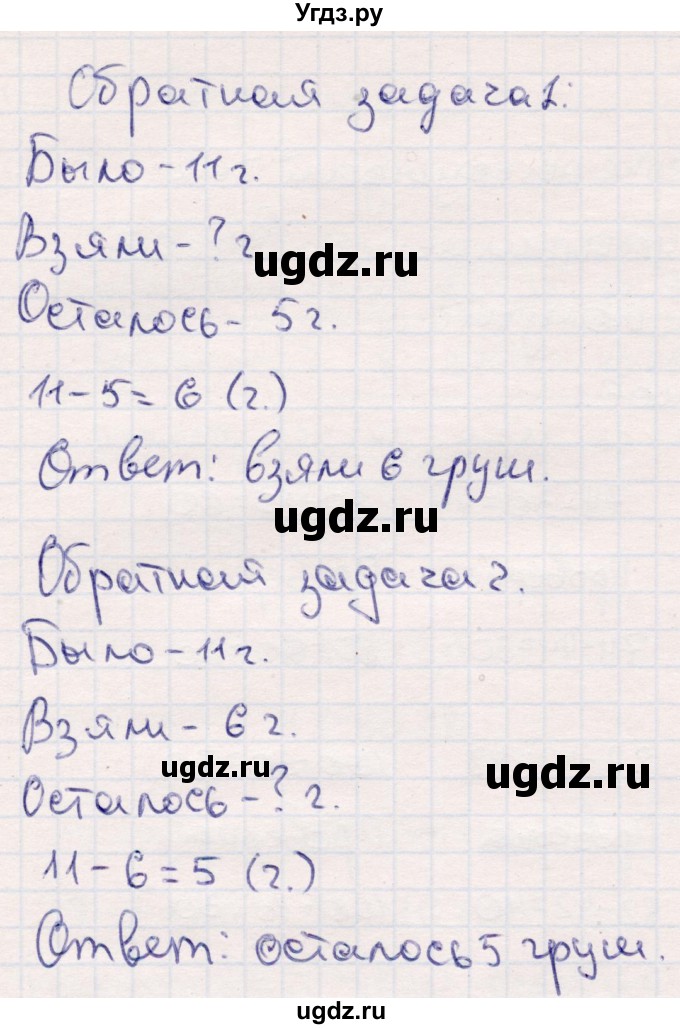 Угдз.ру
Обратная задача 1:
Было - 11 г.
Взяли - ? г
ugdz.ru
Осталось - 5 г.
11 - 5 = 6 (г.)
Ответ: взяли 6 груш.
ugdz.ru
Обратная задача 2.
Было - 11 г.
Взяли - 6 г.
ugdz.ru
ugdz.ru
Осталось - ? г.
11 - 6 = 5 (г.)
Ответ: осталось 5 груш.
ugdz.ru